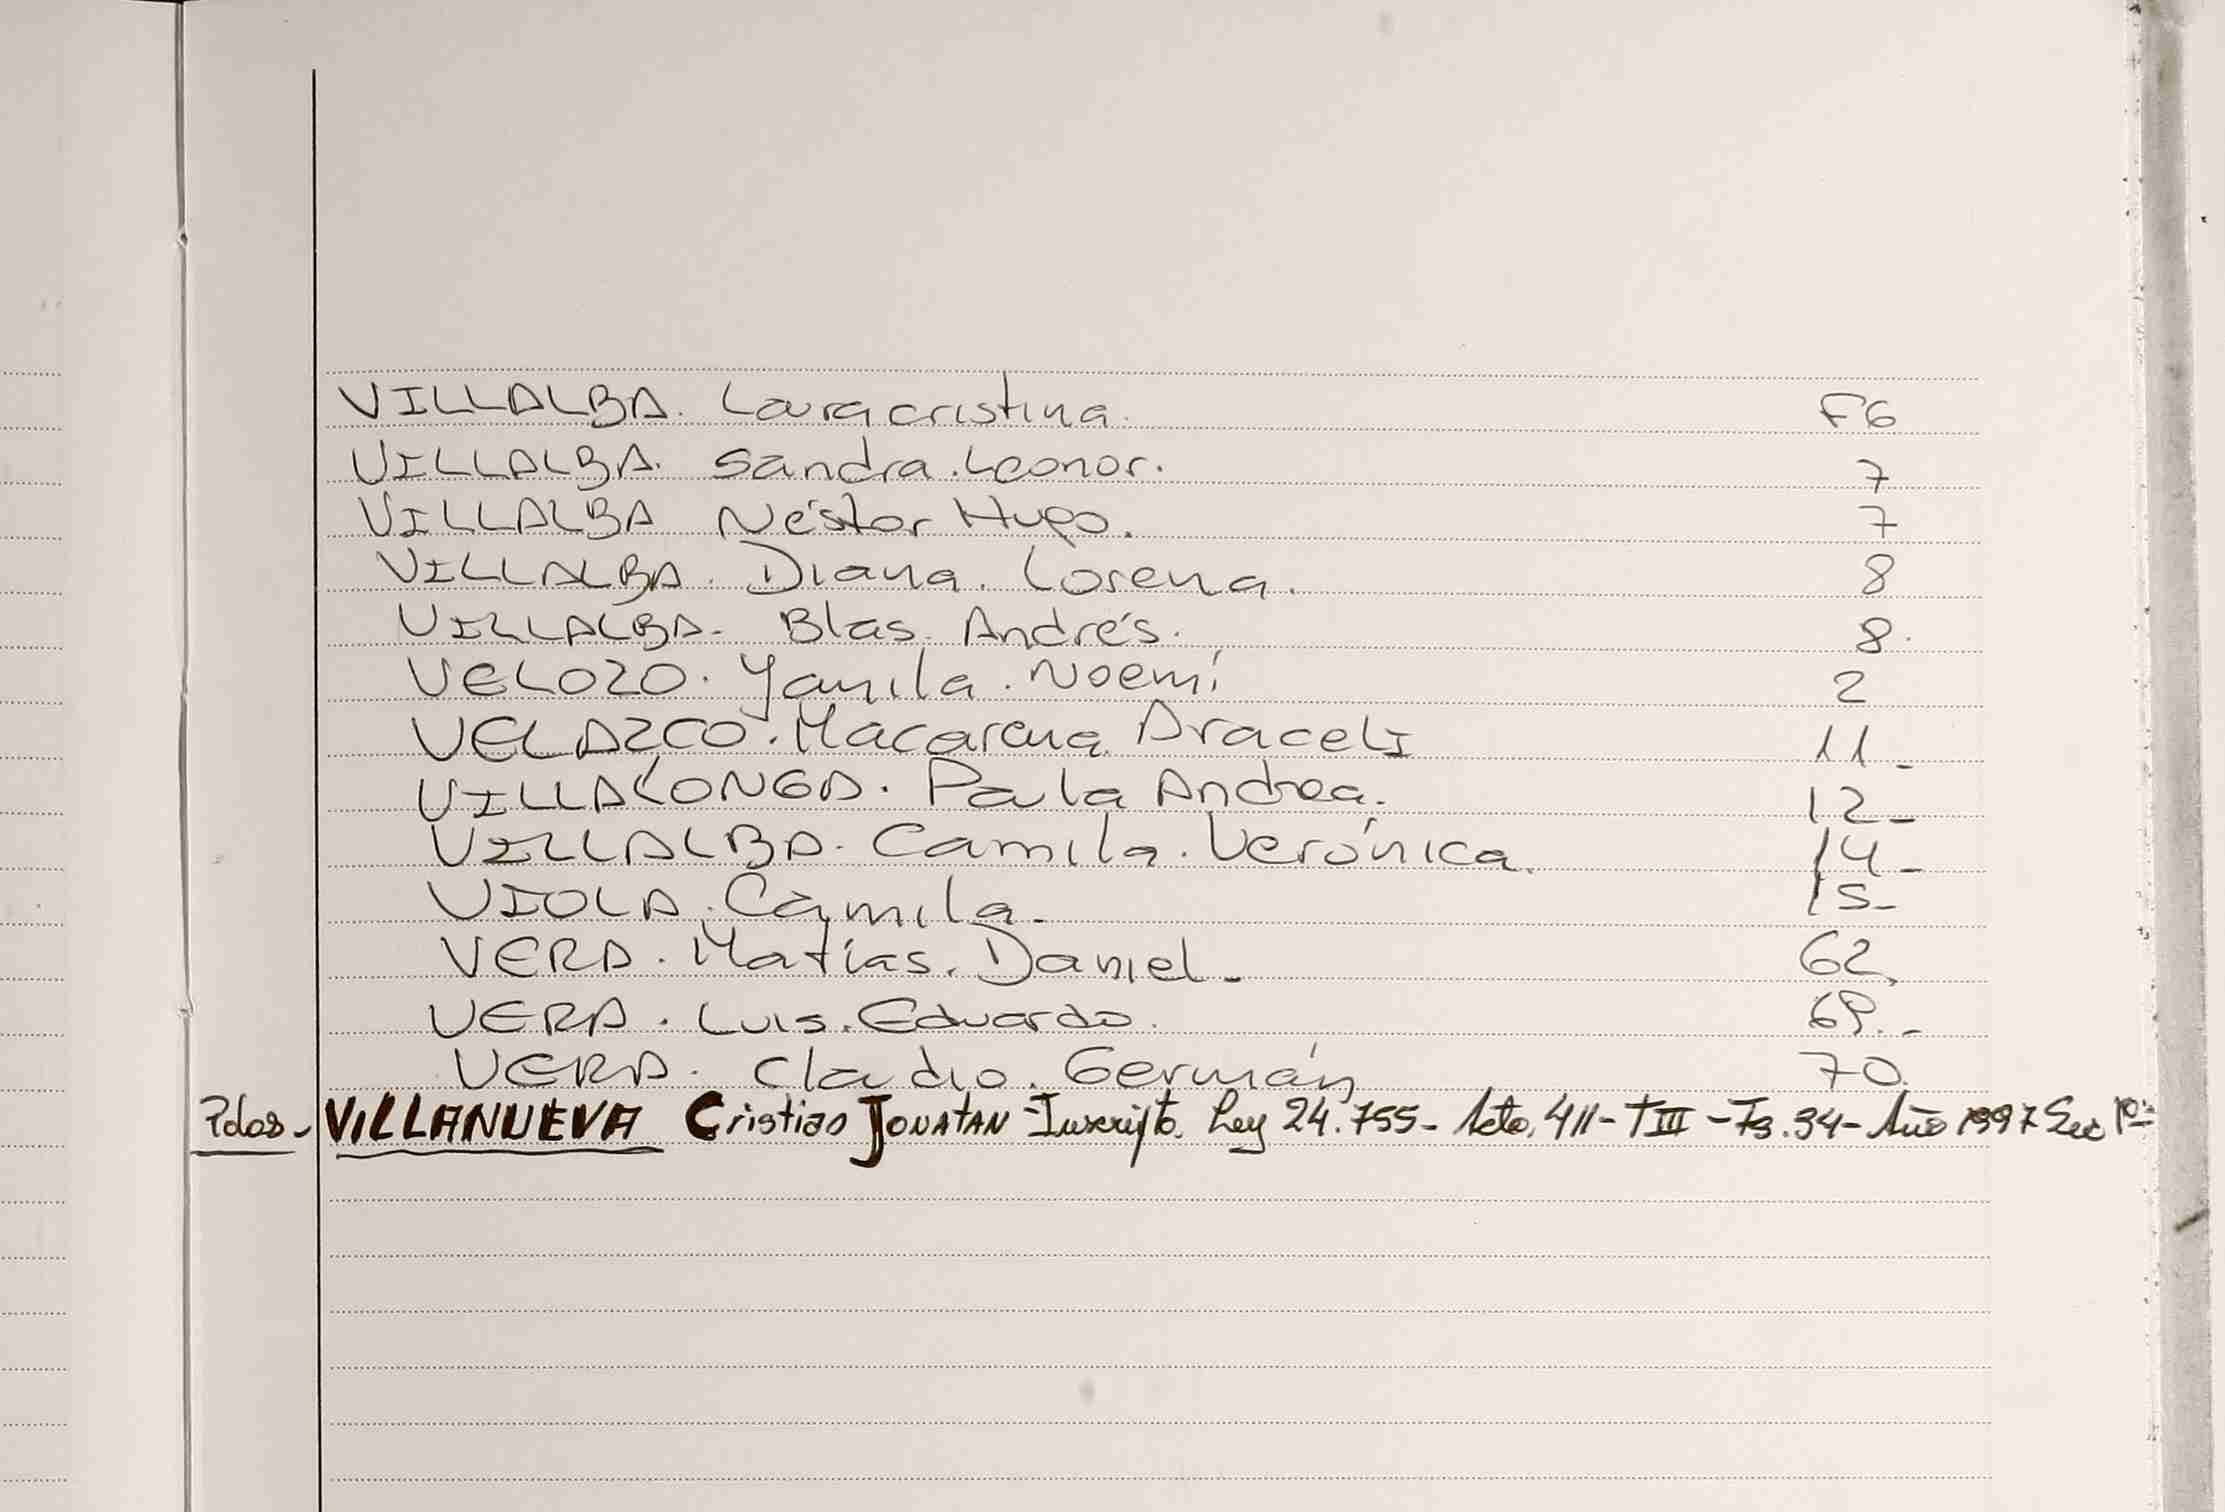 VILLALBA. Laura cristina. F6
VILLALBA. Sandra. Leonor. 7
VILLALBA Néstor Hugo. 7
VILLALBA. Diana. Lorena. 8
VILLALBA. Blas. Andrés. 8.
VELOZO. Yamila. Noemí 2
VELAZCO. Macarena Araceli 11_
VILLALONGA. Paula Andrea. 12_
VILLALBA. Camila. Verónica. 14_
VIOLA. Camila. 15_
VERA. Matías. Daniel_ 62.
VERA. Luis. Eduardo. 69._
VERA. Cladio. Germán 70.
Pdos_ VILLANUEVA Cristian JONATAN - Inscripto. Ley 24.755_ Acta. 411 - T III - Fs. 34 - Año 1997 Sec 1º